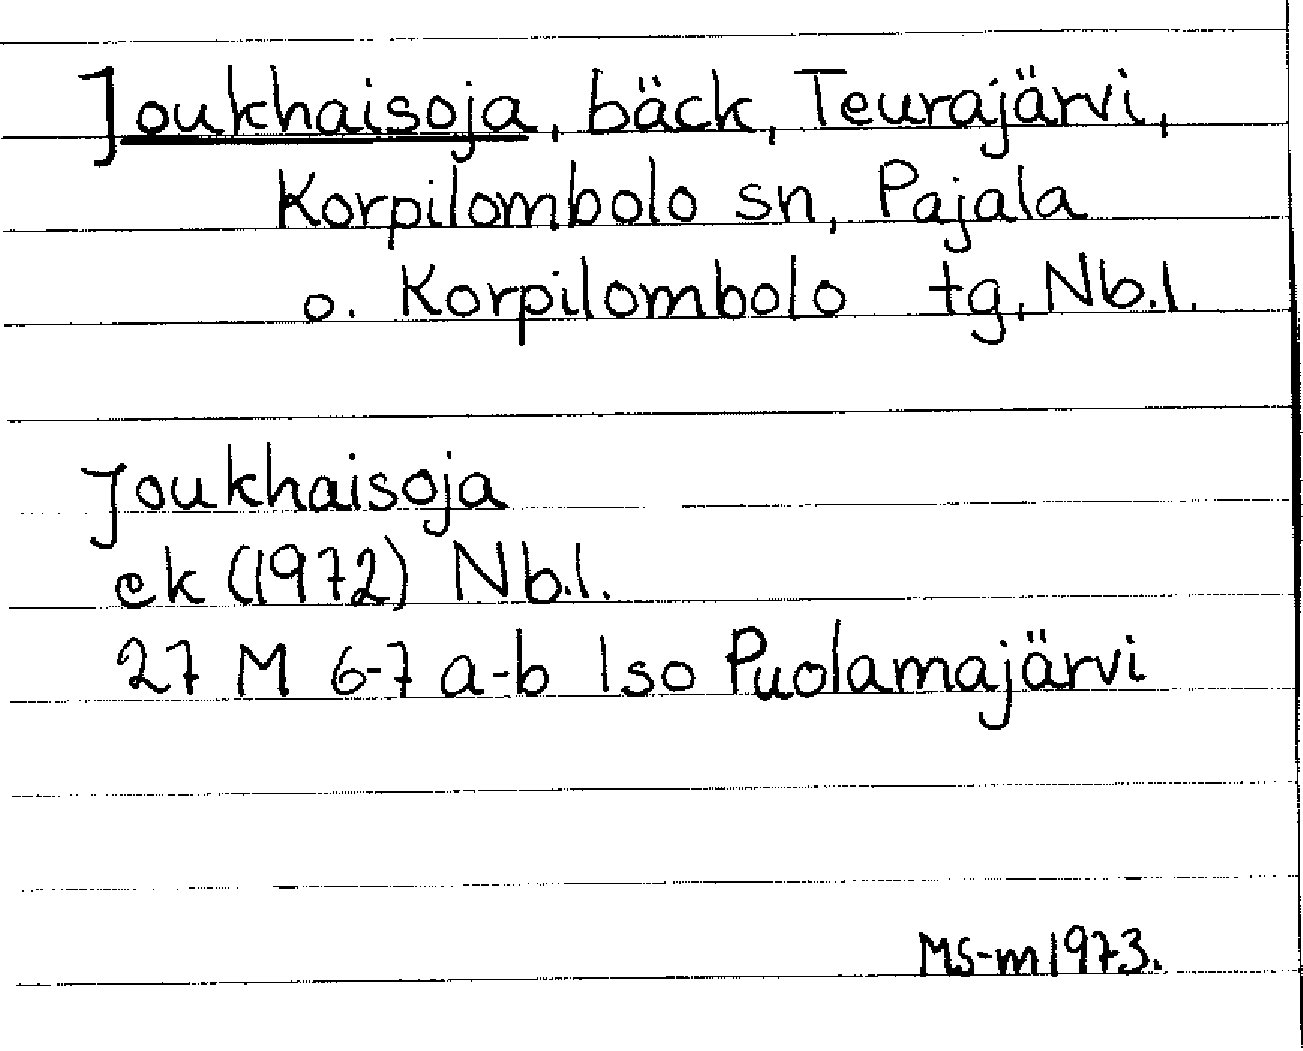 Joukhaisoja, bäck, Teurajärvi,
Korpilombolo sn, Pajala
o. Korpilombolo tg, Nb.l.
Joukhaisoja
ek (1972) Nb.l.
27 M 6-7 a-b Iso Puolamajärvi
MS-m 1973.